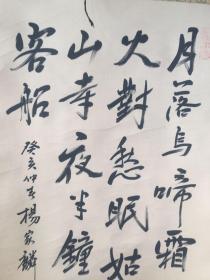 月落烏啼霜
火對愁眠姑
山寺夜半鐘
客船
癸亥仲春楊家麟